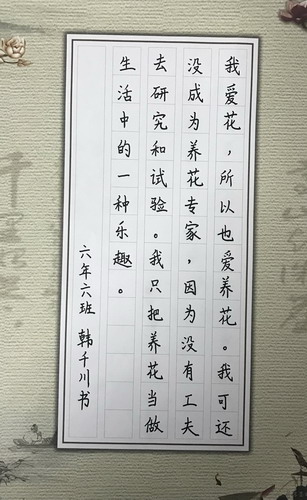 我爱花，所以也爱养花。我可还
没成为养花专家，因为没有工夫
去研究和试验。我只把养花当做
生活中的一种乐趣。
六年六班 韩千川书